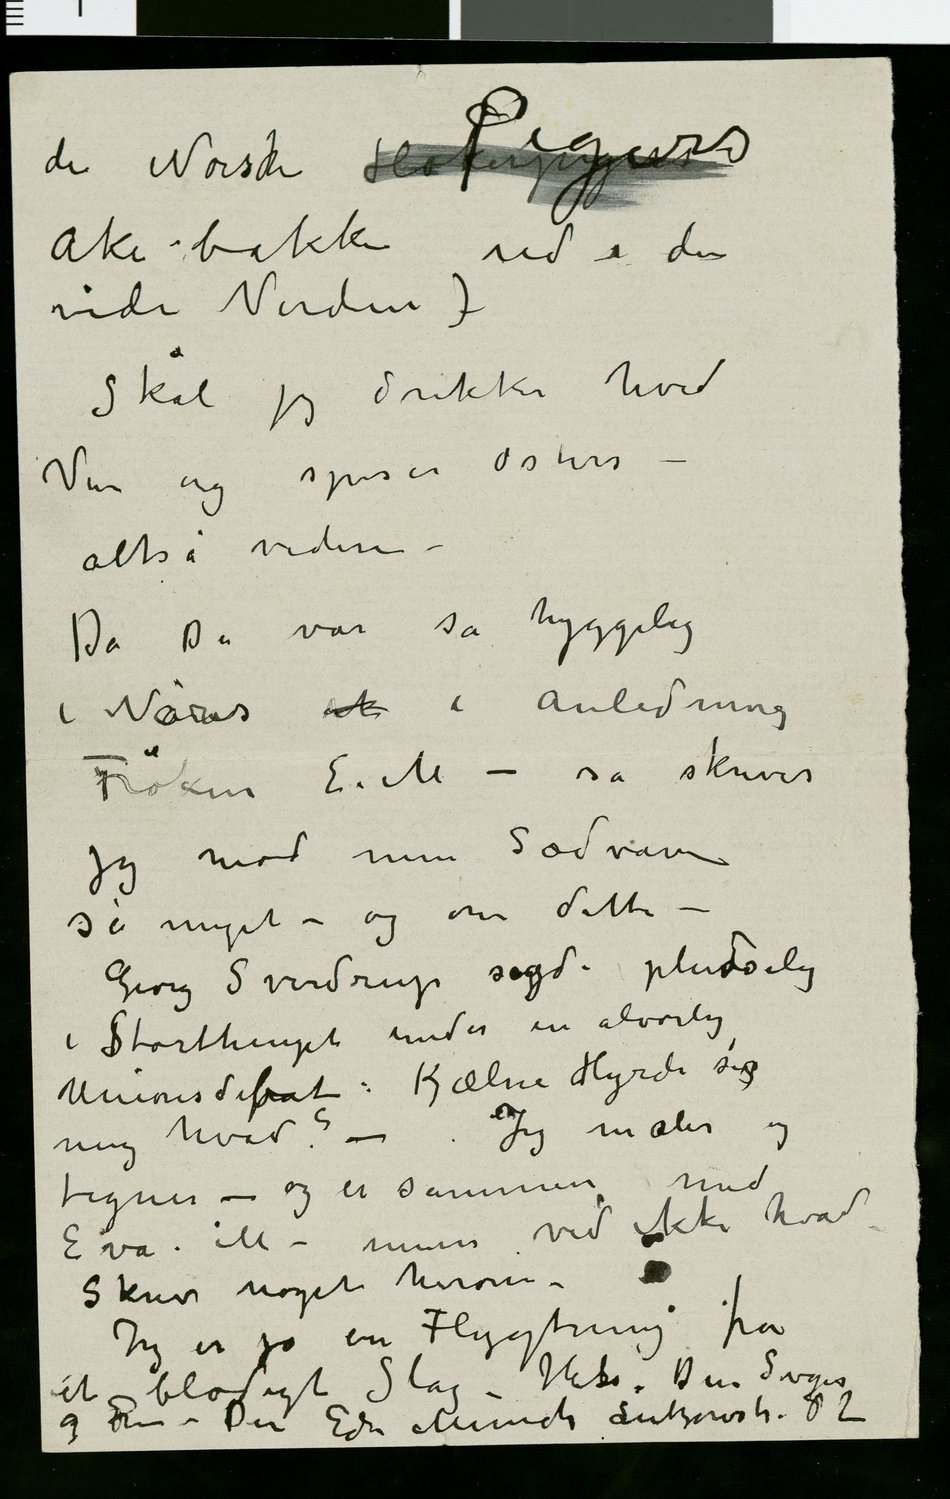 de Norske Pigers
Akebakke ned i den
vide Verden)
Skål jeg drikker hvid
Vin og spiser østers –
altså videre –
Da Du var så hyggelig
i Nòras i Anledning
Frøken E. M – så skriver
jeg mod min Sædvane
så meget – og om dette –
Georg Sverdrup sagde pludselig
i Storthinget under en alvorlig
Unionsdebat: Kjælne Hyrde sig
mig hvad? – Jeg maler og
tegner – og er sammen med
Eva. M – men ved ikke hvad –
Skriv noget herom –
Jeg er jo en Flygtning fra
et blodigt Slag – Hils Din Sviger
og Din – Din Edv Munch Lützowstr. 82